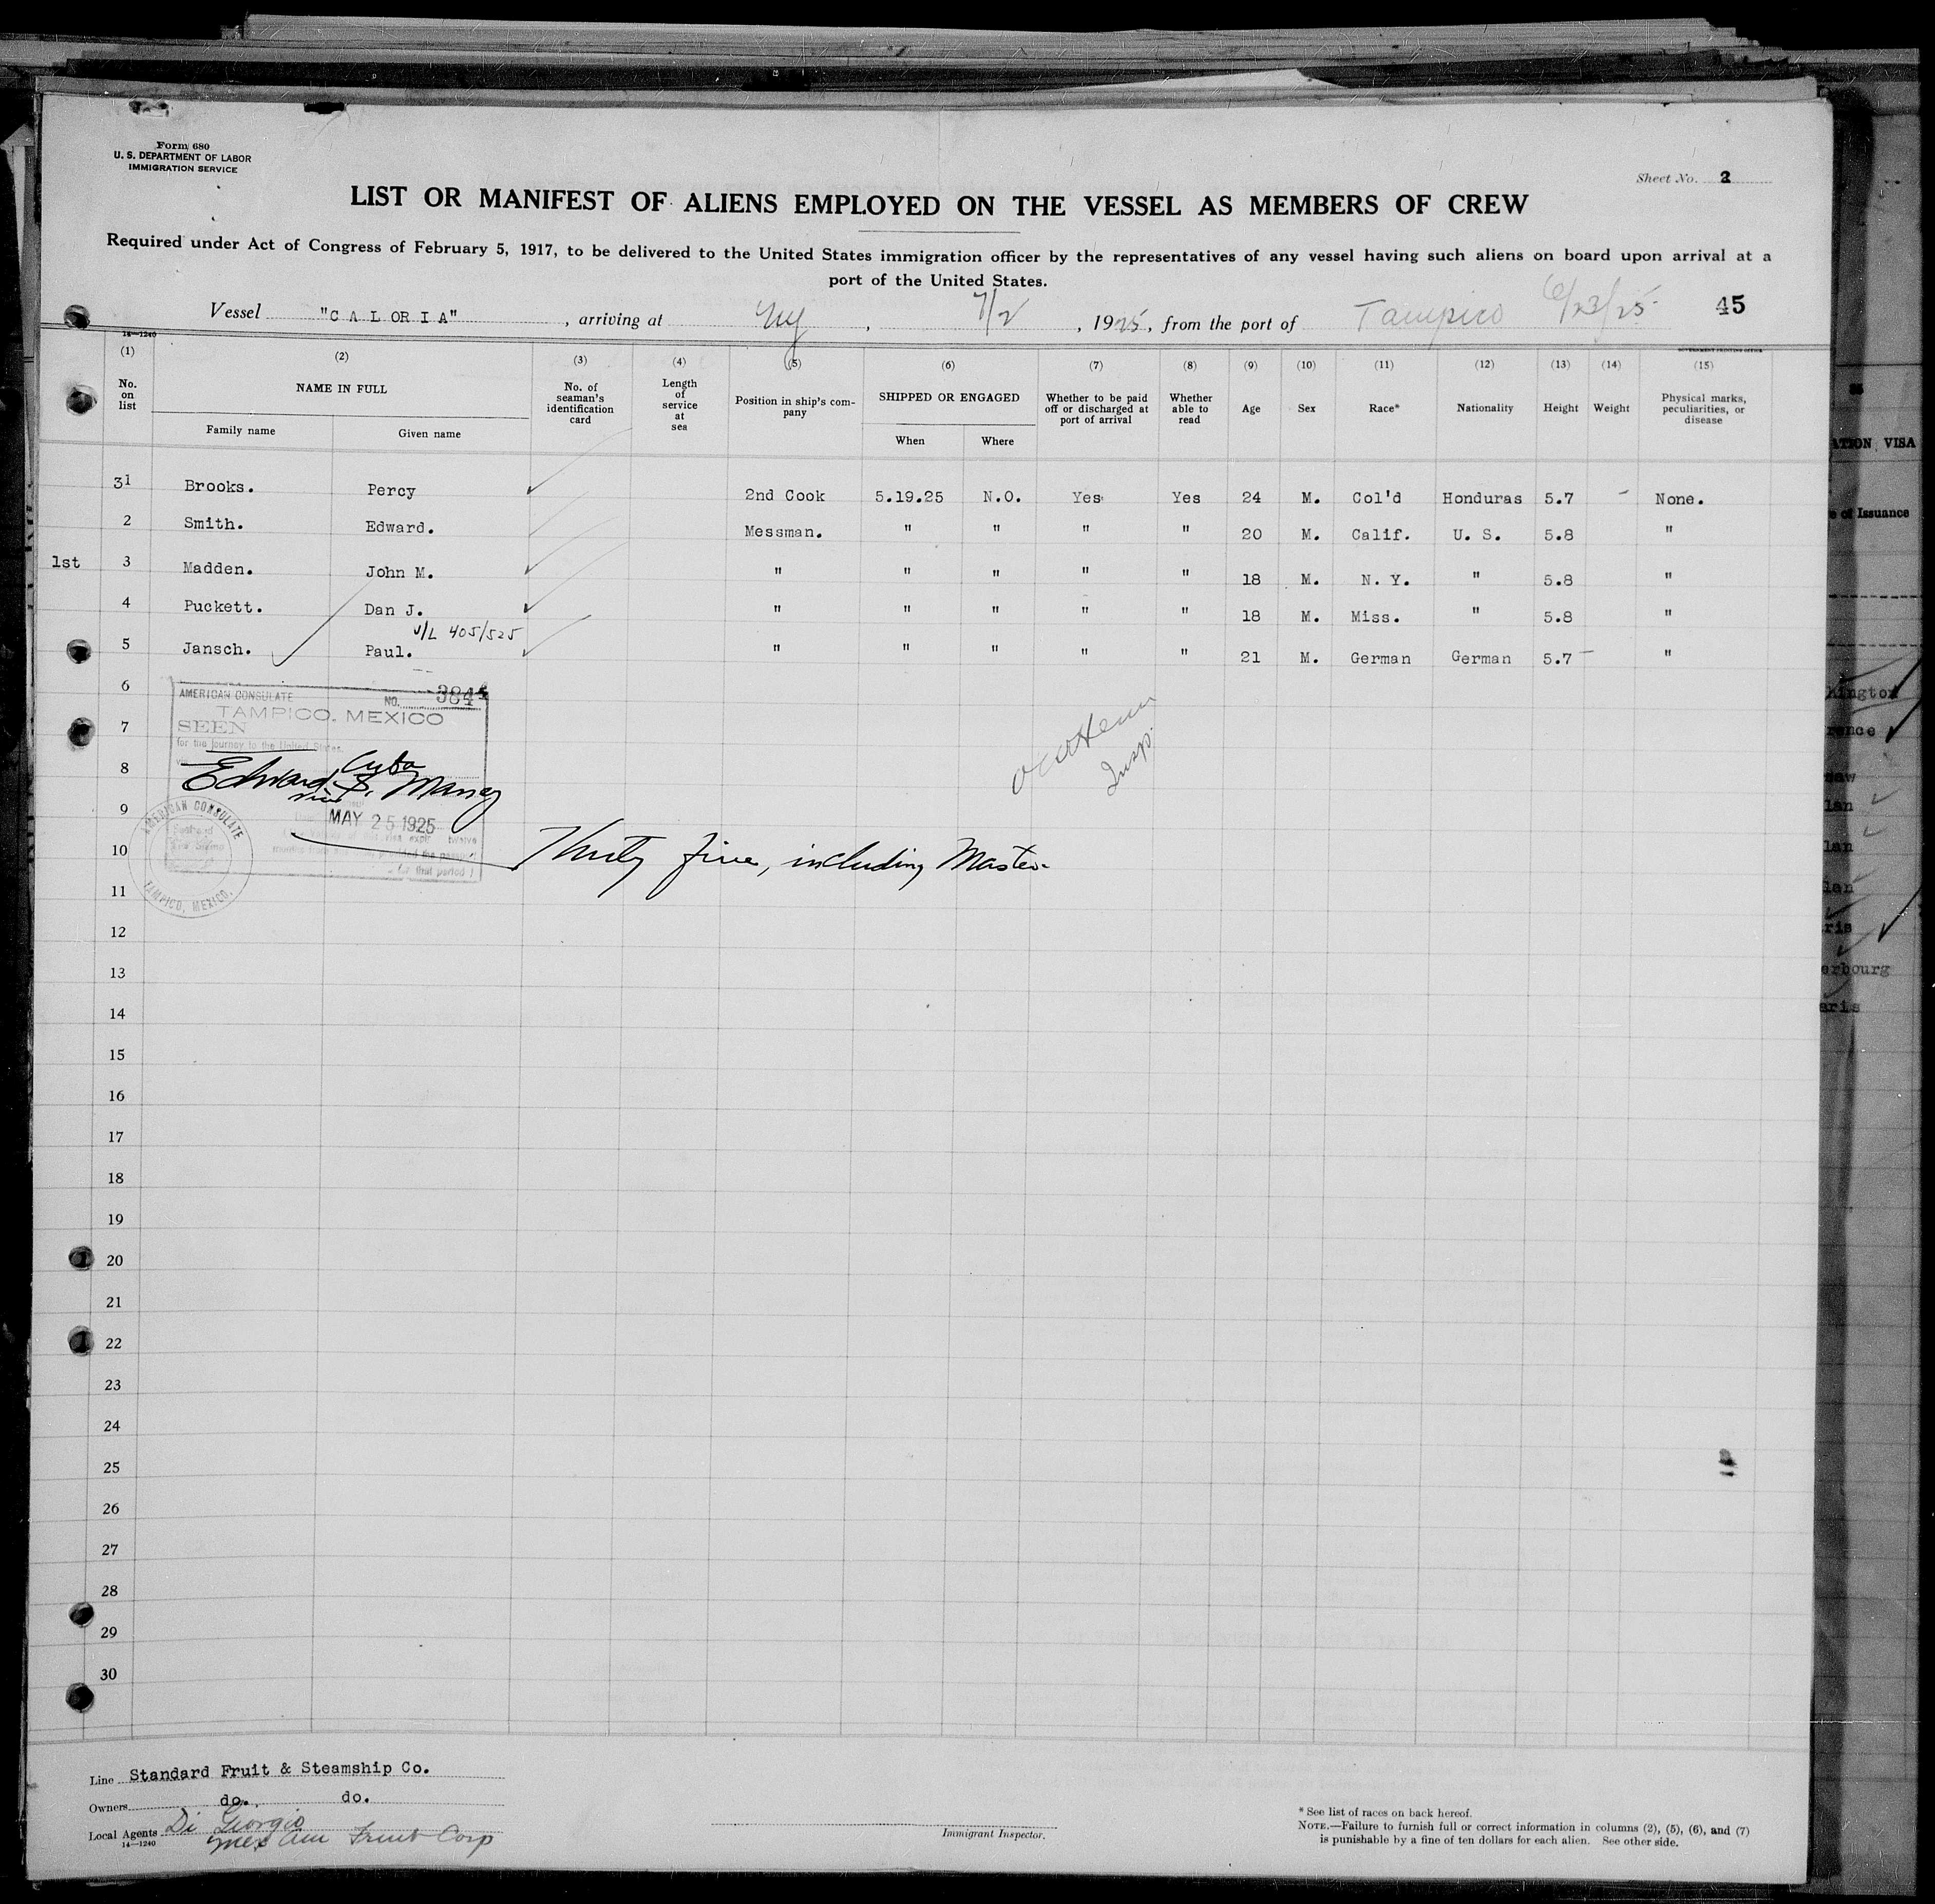 Form 680
U. S. DEPARTMENT OF LABOR
IMMIGRATION SERVICE
Sheet No. 2
LIST OR MANIFEST OF ALIENS EMPLOYED ON THE VESSEL AS MEMBERS OF CREW
Required under Act of Congress of February 5, 1917, to be delivered to the United States immigration officer by the representatives of any vessel having such aliens on board upon arrival at a
port of the United States.
Vessel "CALORIA", arriving at NY, 7/2, 1925, from the port of Tampico 6/23/25 45
14—1240
GOVERNMENT PRINTING OFFICE
(1) (2) (3) (4) (5) (6) (7) (8) (9) (10) (11) (12) (13) (14) (15)
No. on list
NAME IN FULL
Family name Given name
No. of seaman's identification card
Length of service at sea
Position in ship's company
SHIPPED OR ENGAGED
When Where
Whether to be paid off or discharged at port of arrival
Whether able to read
Age Sex Race* Nationality Height Weight
Physical marks, peculiarities, or disease
31 Brooks. Percy 2nd Cook 5.19.25 N.O. Yes Yes 24 M. Col'd Honduras 5.7 - None.
2 Smith. Edward. Messman. " " " " 20 M. Calif. U. S. 5.8 "
1st 3 Madden. John M. " " " " " 18 M. N. Y. " 5.8 "
4 Puckett. Dan J. " " " " " 18 M. Miss. " 5.8 "
V/L 405/525
5 Jansch. Paul. " " " " " 21 M. German German 5.7 "
6
AMERICAN CONSULATE NO. 3844
TAMPICO, MEXICO
7
SEEN
for the journey to the United States.
8
Cuba
Edward S. Maney
9
MAY 25 1925
AMERICAN CONSULATE
TAMPICO, MEXICO.
Insp.
10 Thirty five, including Master
11
12
13
14
15
16
17
18
19
20
21
22
23
24
25
26
27
28
29
30
Line Standard Fruit & Steamship Co.
Owners do. do.
Local Agents Di Giorgio
Mex Am Fruit Corp
14—1240
Immigrant Inspector.
* See list of races on back hereof.
NOTE.—Failure to furnish full or correct information in columns (2), (5), (6), and (7)
is punishable by a fine of ten dollars for each alien. See other side.
ATION VISA
of Issuance